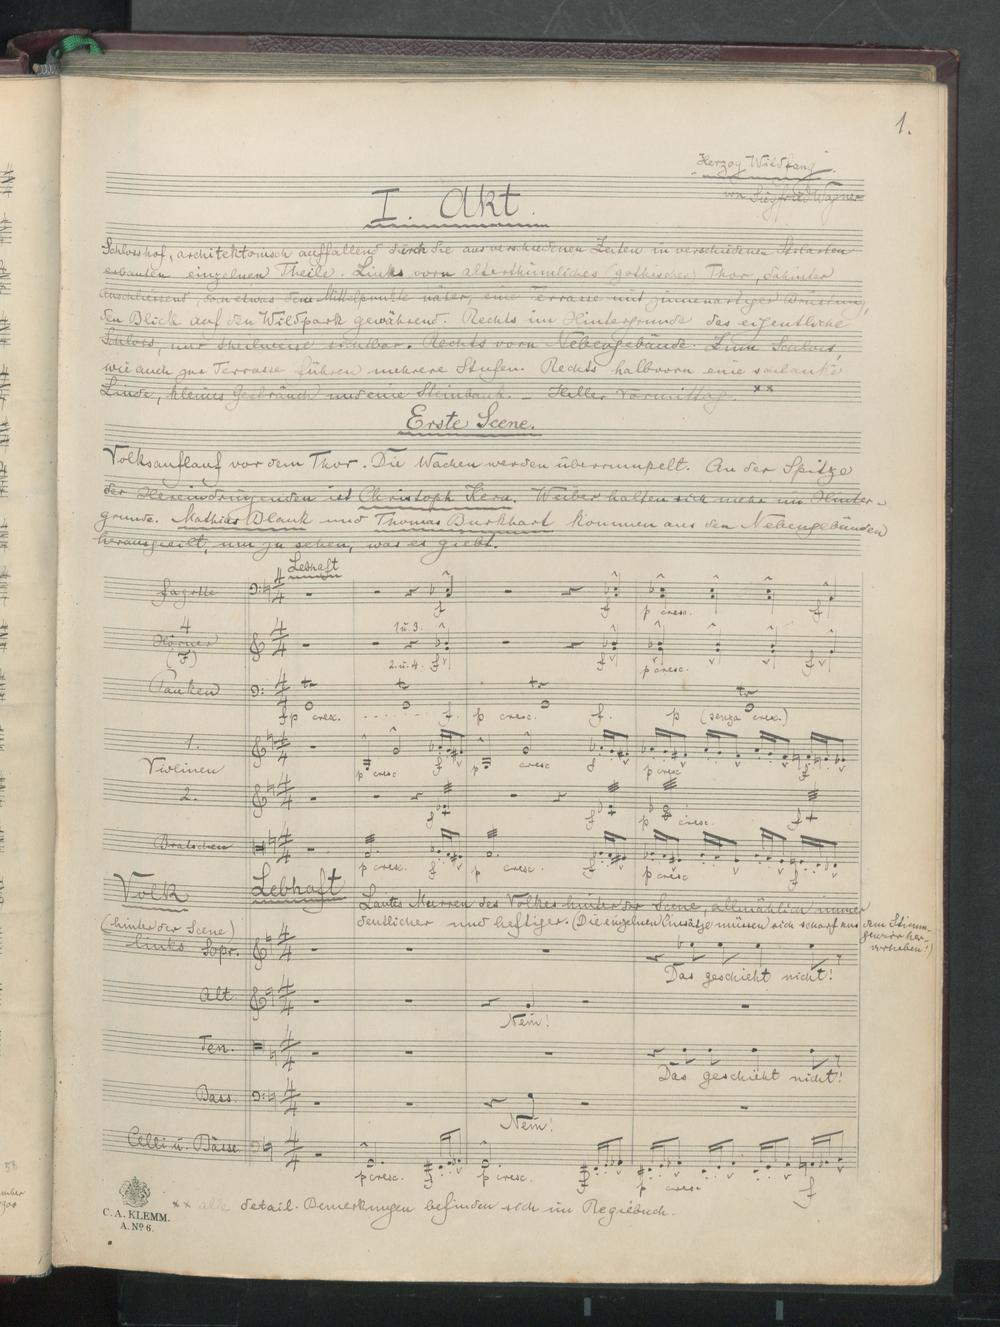 1.
"Herzog Wildfang".
von Siegfried Wagner
I. Akt.
Schlosshof, architektonisch auffallend durch die aus verschiedenen Zeiten in verschiedenen Stilarten
erbauten einzelnen Theile. Links vorn alterthümliches (gothisches) Thor, dahinter
anschliessend, dem Mittelpunkte näher, eine Terrasse mit zinnenartiger Brüstung,
den Blick auf den Wildpark gewährend. Rechts im Hintergrunde das eigentliche
Schloss, nur theilweise sichtbar. Rechts vorn Nebengebäude. Zum Schloss,
wie auch zur Terrasse führen mehrere Stufen. Rechts halbvorn eine schlanke
Linde, kleines Gesträuch und eine Steinbank. – Heller Vormittag. xx
Erste Scene.
Volksauflauf vor dem Thor. Die Wachen werden überrumpelt. An der Spitze
der Hereindringenden ist Christoph Kern. Weiber halten sich mehr im Hinter-
grunde. Mathias Blank und Thomas Burkhart kommen aus den Nebengebäuden
herausgeeilt, um zu sehen, was es giebt.
Lebhaft
Fagotte
f f p cresc. f
4 Hörner (F)
1 u. 3.
2. u. 4. f f p cresc. f
Pauken
fp cresc. f. p cresc. f. p (senza cresc.)
1.
p cresc f p cresc f p cresc f
Violinen
2.
f f p cresc. f
Bratschen
p cresc. f p cresc. f p cresc f
Volk
Lebhaft
Lautes Murren des Volkes hinter der Scene, allmählich immer
deutlicher und heftiger. (Die einzelnen Einsätze müssen sich scharf aus dem Stimm-
gewirr her-
vorheben!)
(hinter der Scene)
links Sopr.
Das geschieht nicht!
Alt.
Nein!
Ten.
Das geschieht nicht!
Bass.
Nein!
Celli u. Bässe.
p cresc. f p cresc. f p cresc. f
xx alle detail. Bemerkungen befinden sich im Regiebuch.
C. A. KLEMM.
A. Nº 6.